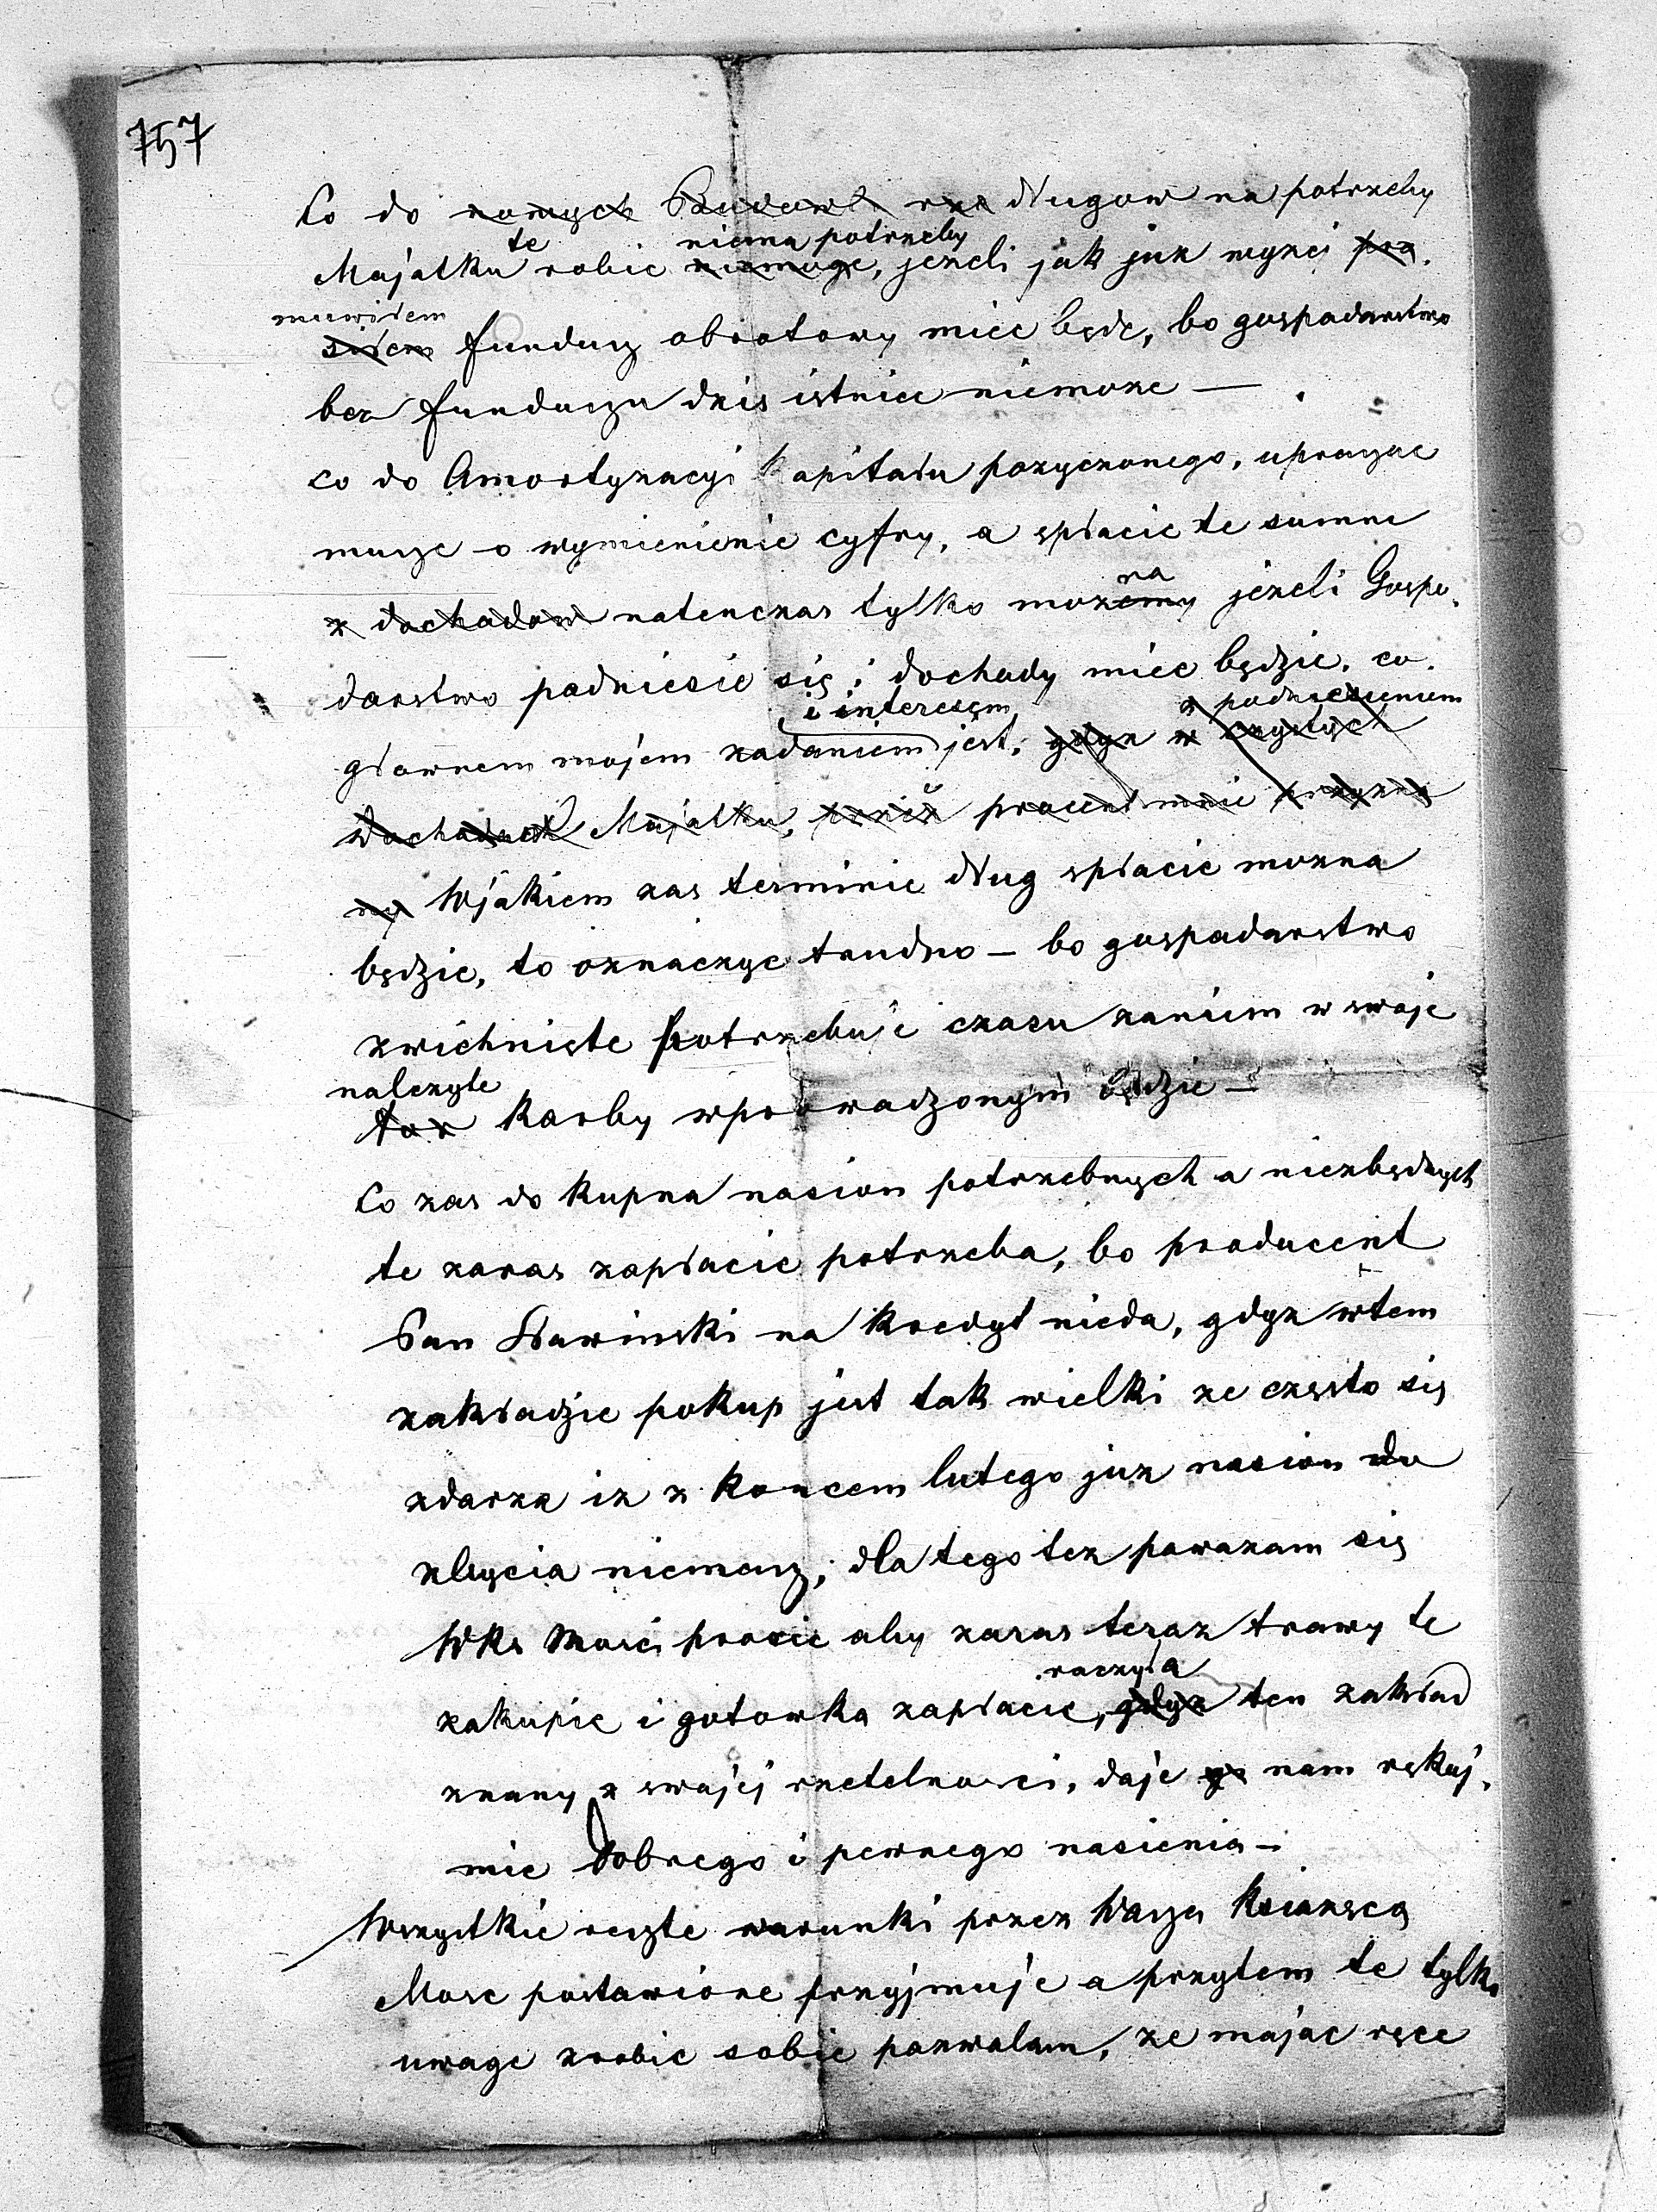 757
Co do nowych Budowl długow na potrzeby
te niema potrzeby
Majatku robic niemoge, jezeli jak juz wyzej po.
muwiłem
sułem fundusz obrotowy miec będe, bo gospodarstwo
bez funduszu dzis istniec niemoze —
co do Amortyzacyi Kapitału pozyczonego, upraszac
musze o wymienienie cyfry, a spłacic te summe
na
z dochodow natenczas tylko mozemy jezeli Gospo.
darstwo podniesie się i dochody miec będzie. co.
i interesęm z podniesieniem
głownem mojem zadaniem jest, gdyz w czystych
dochodach Majatku, procent mnie przyzna
ny Wjakiem zas terminie dług spłacic mozna
będzie, to oznaczyc trudno — bo gospodarstwo
zwichniete potrzebuie czasu zaniem w swoje
nalezyte
tor Karby wprowadzonym będzie —
Co zas do kupna nasion potrzebnych a niezbędnych
te zaras zapłacic potrzeba, bo producent
Pan Sławinski na kredyt nieda, gdyz wtem
zakładzie pokup jest tak wielki ze często się
zdarza iz z koncem lutego juz nasion do
zbycia niemasz, dla tego tez powazam się
WKs Mosci prosic aby zaras teraz trawy te
raczyła
zakupic i gotowka zapłacic, gdyz ten zakład
znany z swojej rzetelnosci, daje go nam rękoj.
mie Dobrego i pewnego nasienia —
Wszystkie reszte warunki przez Wasza Ksiazęcą
Mosc postawione przyjmuje a przytem te tylko
uwage zrobic sobie pozwalam, ze majac ręce